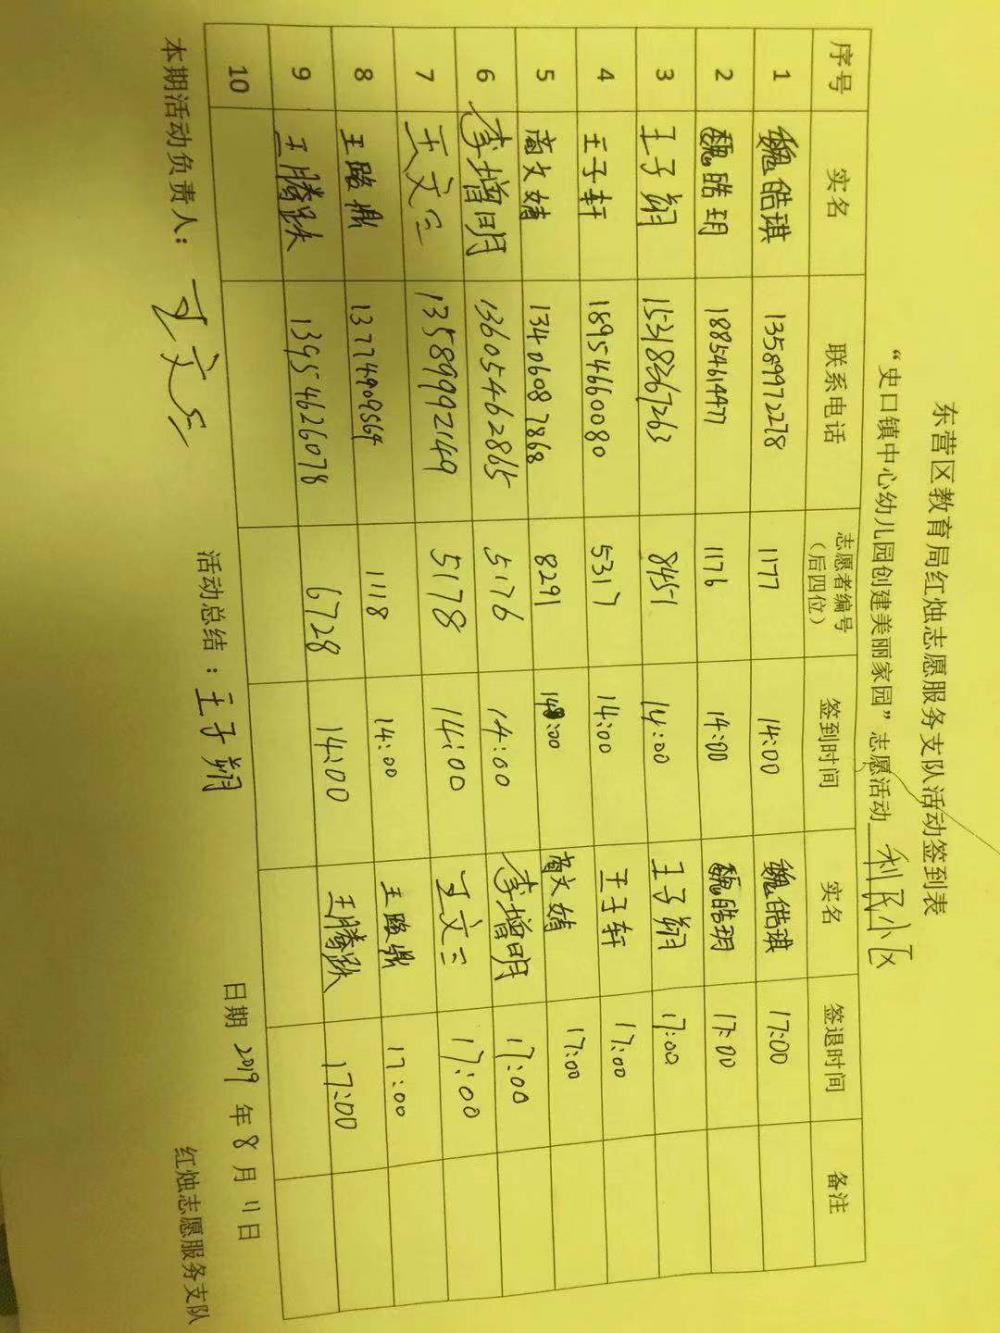 东营区教育局红烛志愿服务支队活动签到表
“史口镇中心幼儿园创建美丽家园”志愿活动 利民小区
序号 实名 联系电话 志愿者编号（后四位） 签到时间 实名 签退时间 备注
1 魏皓琪 13589972278 1177 14:00 魏皓琪 17:00
2 魏皓玥 18854614477 1176 14:00 魏皓玥 17:00
3 王子翔 15318267263 8451 14:00 王子翔 17:00
4 王子轩 18954660080 5317 14:00 王子轩 17:00
5 高文婧 13406087868 8291 14:00 高文婧 17:00
6 李增明 13605462865 5176 14:00 李增明 17:00
7 王文三 13589992149 5178 14:00 王文三 17:00
8 王路鼎 13774909564 1118 14:00 王路鼎 17:00
9 王腾跃 13954626078 6728 14:00 王腾跃 17:00
10
本期活动负责人： 王文三 活动总结： 王子翔 日期 2019 年 8 月 11 日
红烛志愿服务支队